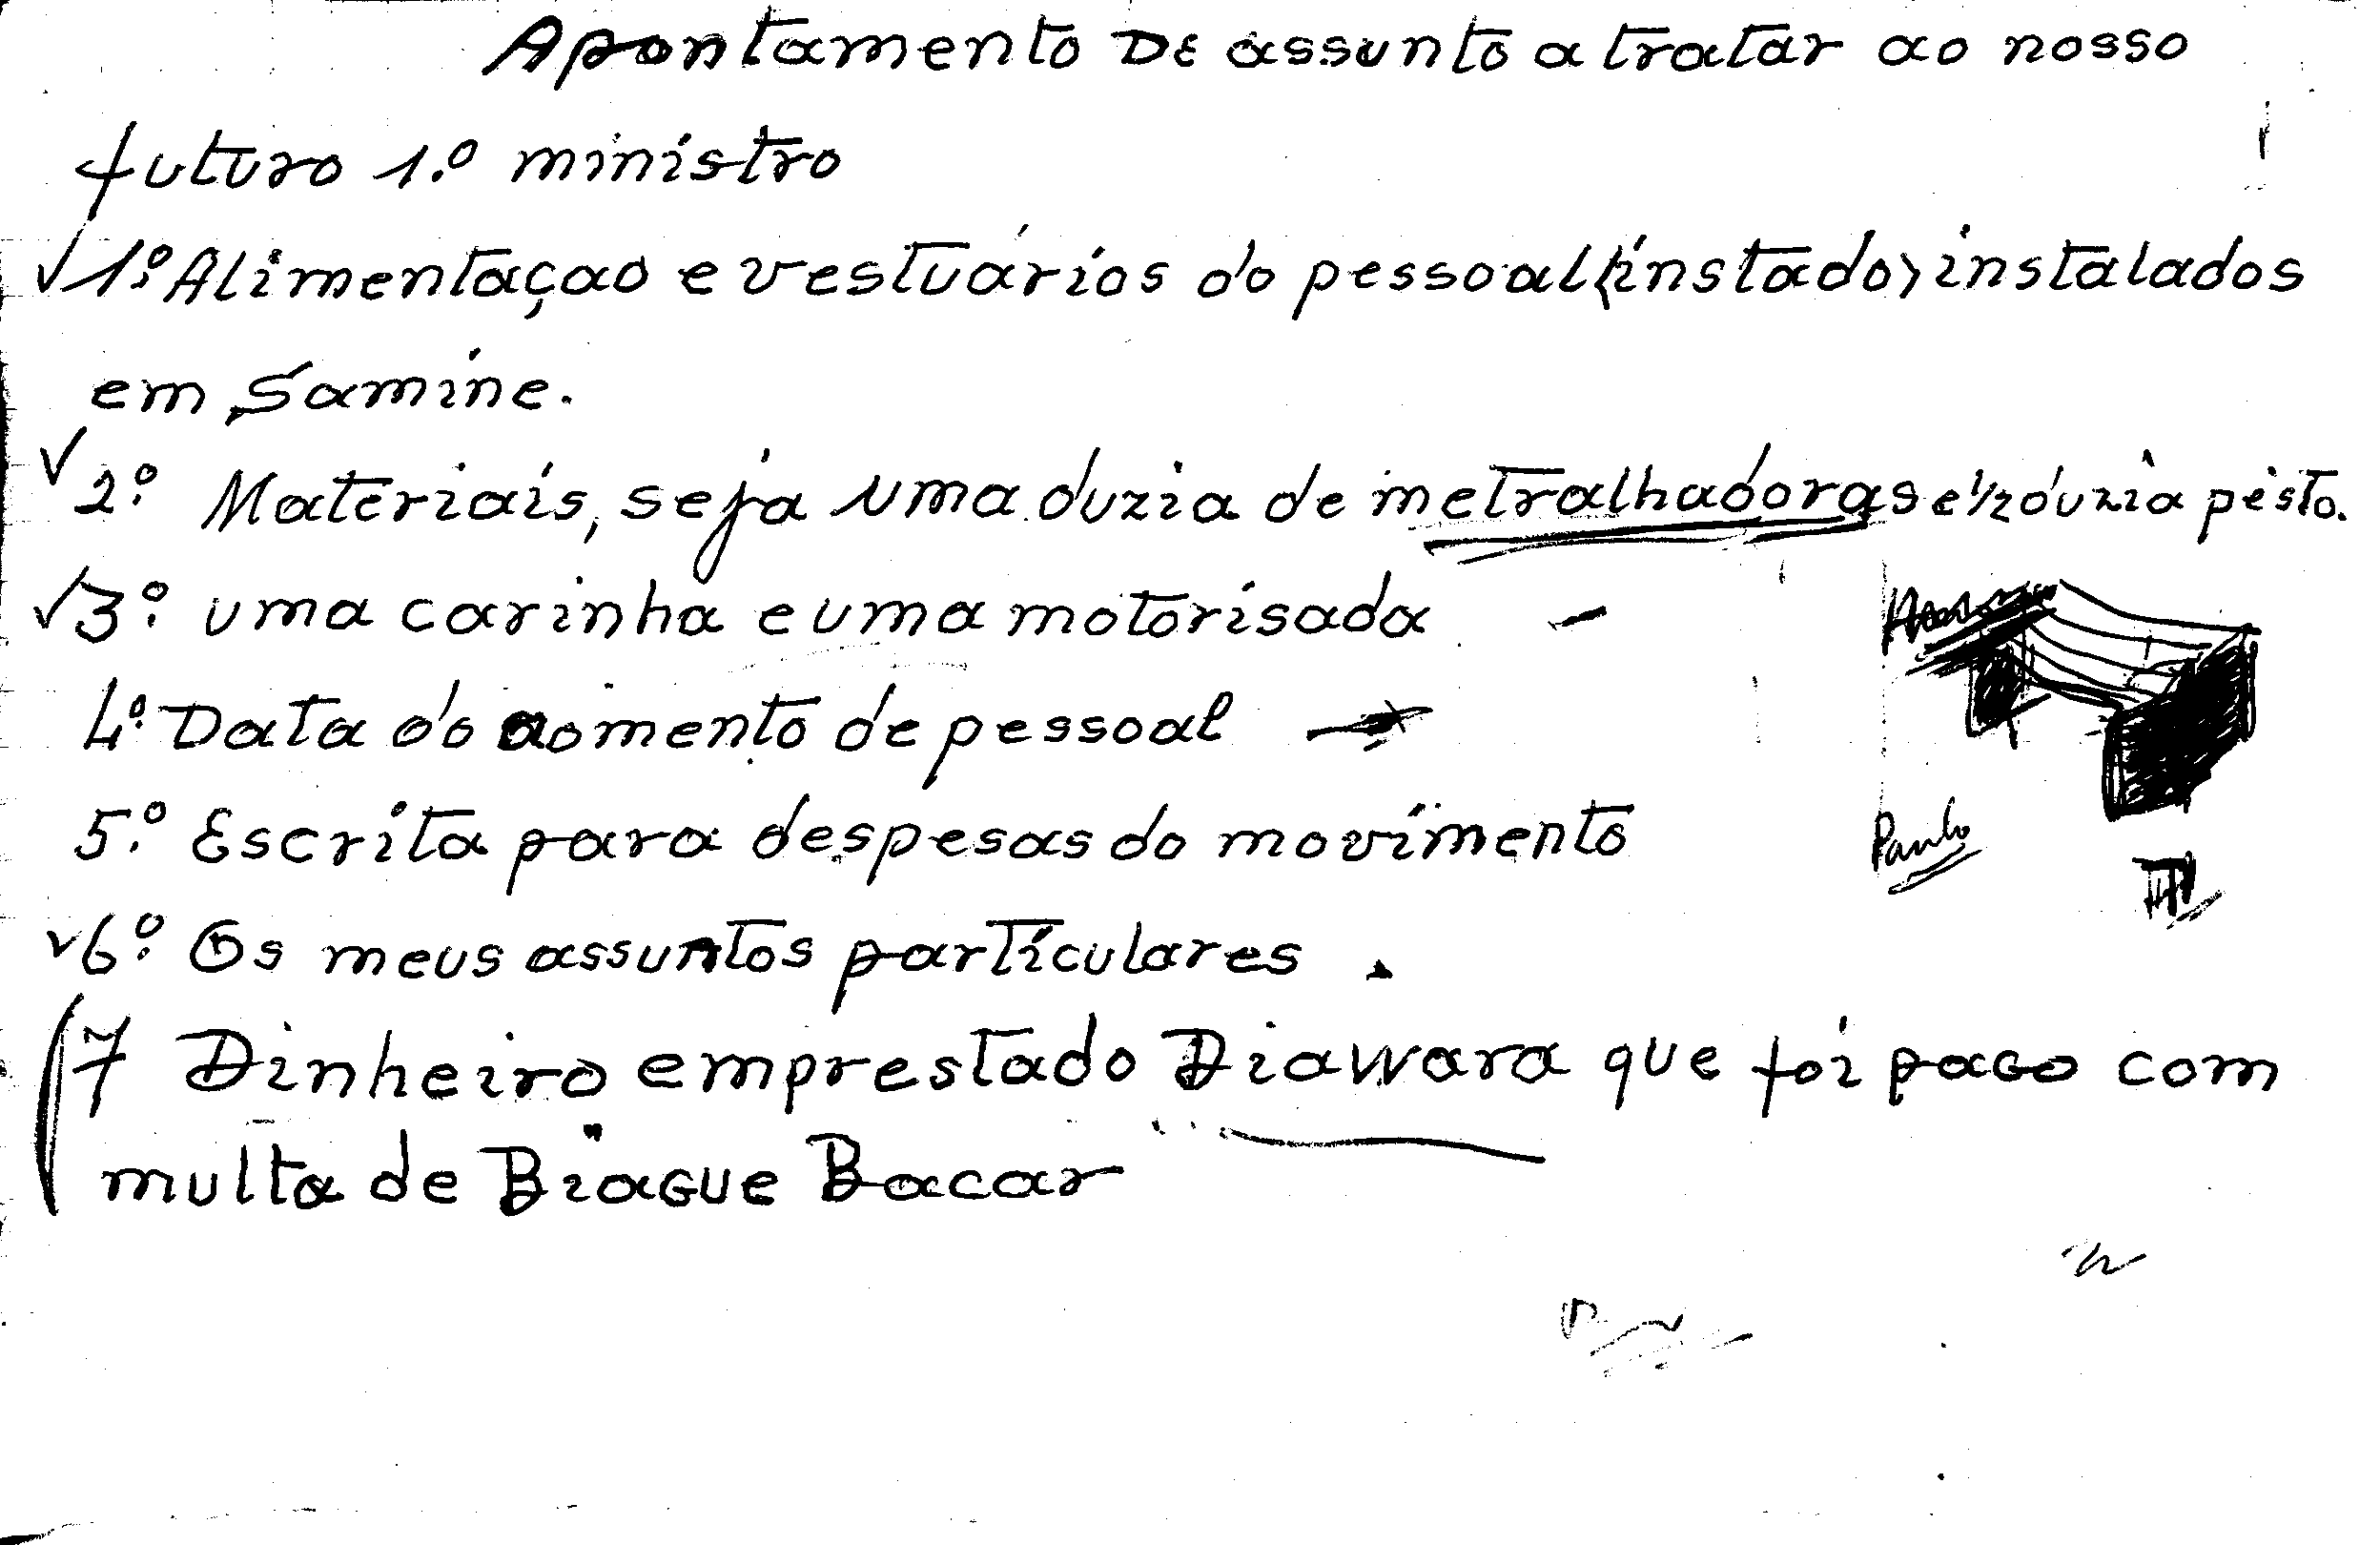 Apontamento DE assunto a tratar ao nosso
futuro 1.º ministro
√ 1º. Alimentaçao e vestuários do pessoal (instado) instalados
em Samine.
√ 2º. Materiais, seja uma duzia de metralhadoras e 1/2 duzia pisto.
√ 3º. uma carinha e uma motorisada -
4º. Data do aomento de pessoal
5º. Escrita para despesas do movimento
Paulo
√ 6º. Os meus assuntos particulares .
7 Dinheiro emprestado Diawara que foi pago com
multa de Biague Bacar